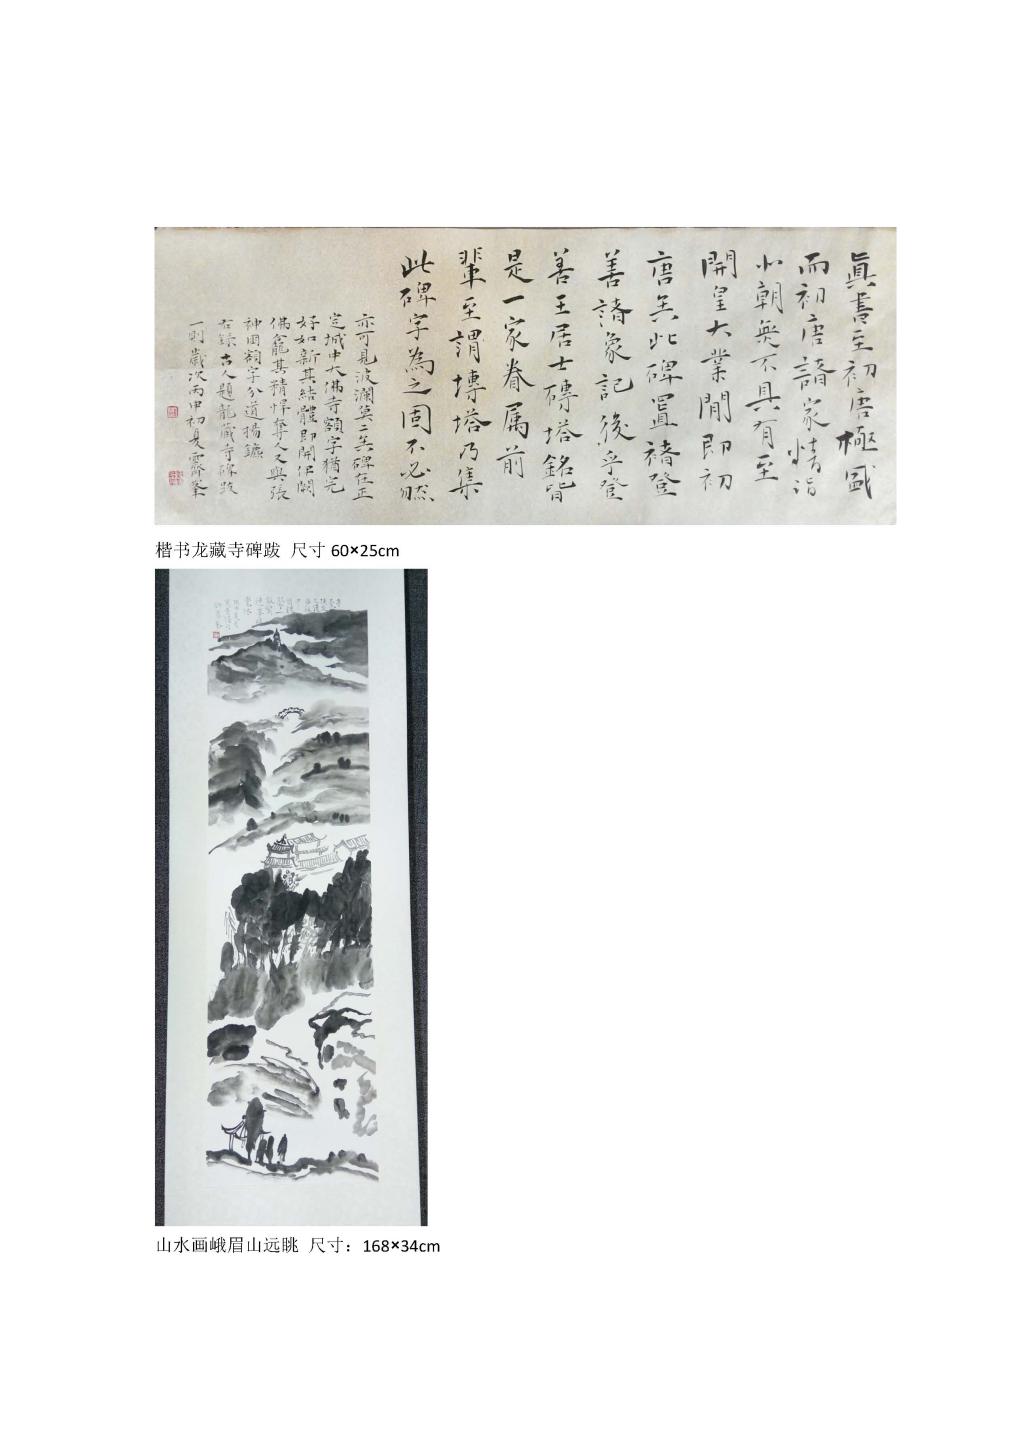 眞書至初唐極盛
而初唐諸家精詣
北朝無不具有至
開皇大業間即初
唐矣此碑置褚登
善諸象記後乎登
善王居士磚塔銘皆
是一家眷属前
輩至謂塼塔乃集
此碑字為之固不必然
亦可見波瀾莫二矣碑在正
定城中大佛寺額字猶完
好如新其結體即開伊闕
佛龕其精悍奪人又與張
神冏額字分道揚鑣
右録古人題龍蔵寺碑跋
一則歲次丙申初夏霽峯
楷书龙藏寺碑跋 尺寸 60×25cm
山水画峨眉山远眺 尺寸：168×34cm